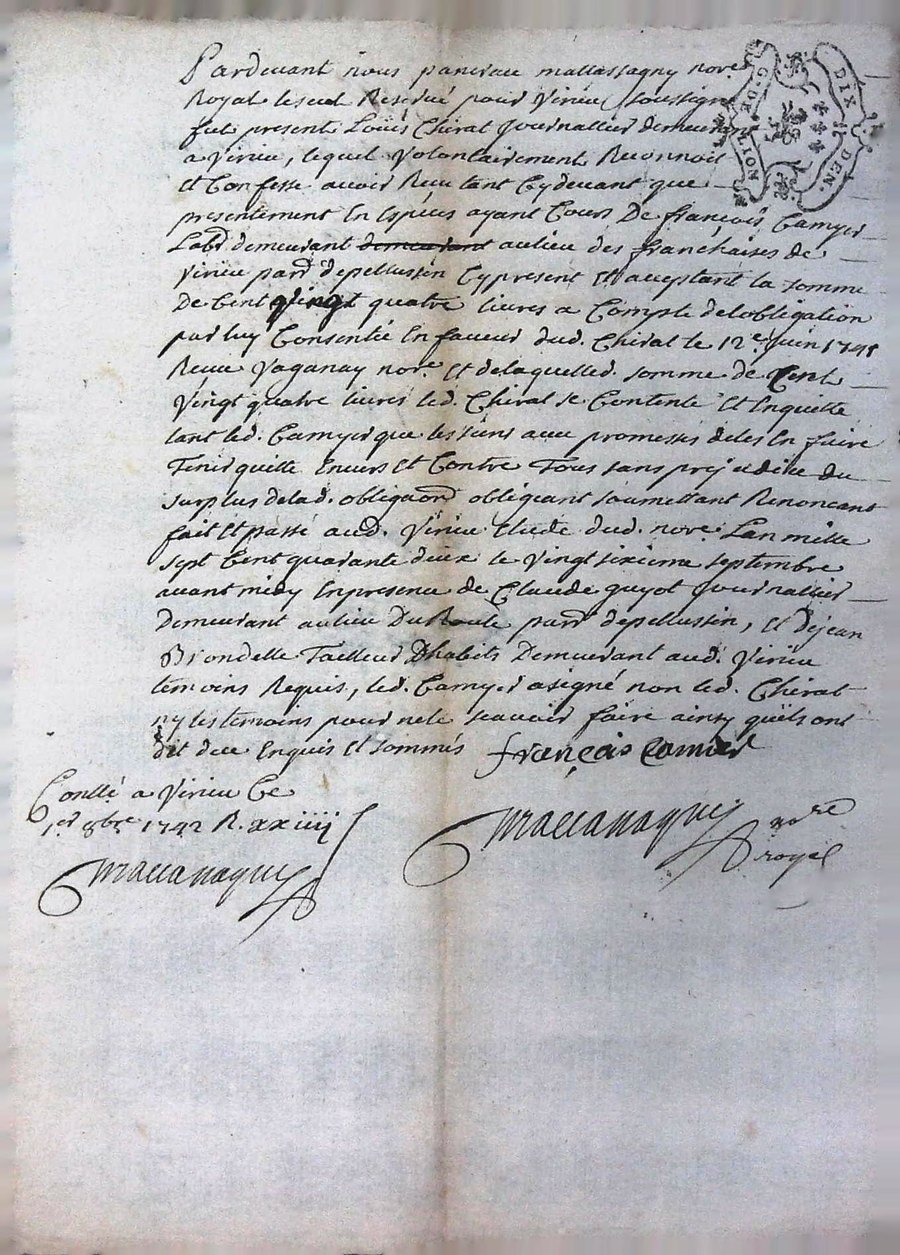 Pardevant nous pancrace mattassagny nore
Royal le seul Reservé pour Virieu Soussigné
fut present Loüis Chirat Journallier demeurant
a Virieu, lequel Volontairement Reconnoit
Et Confesse avoir Recu tant Cydevant que
presentement En Espèces ayant Cours De françois Camyer
Labr demeurant demeurant au lieu des franchises de
Virieu parr depellussin Cy present Et acceptant la somme
De Cent Vingt quatre livres a Compte delobligation
par luy Consentie En faveur dud. Chirat le 12e Juin 1741
Recue Vaganay nore Et delaquelle d. somme de Cent
Vingt quatre livres led. Chirat se Contente Et Enquitte
tant led. Camyer que les siens avec promesses de les En faire
Tenir quitte Envers Et Contre Tous sans prejudice du
surplus delad. obligaõn obligeant soumettant Renoncant
fait Et passé aud. Virieu Etude dud. nore. Lan mille
sept Cent quarante deux le Vingt sixieme septembre
avant midy En presence de Claude guyot Journallier
Demeurant au lieu Du parr depellussin, Et dejean
Brondelle Tailleur Dhabits Demeurant aud. Virieu
temoins Requis, led. Camyer a signé non led. Chirat
ny les temoins pour ne le sçavoir faire ainsy quils ont
dit de ce Enquis Et sommés françois Camier
Conllé a Virieu Ce
1er 8bre 1742 R. xxiiij s
nore
royal
G. DE LION
DIX DEN.